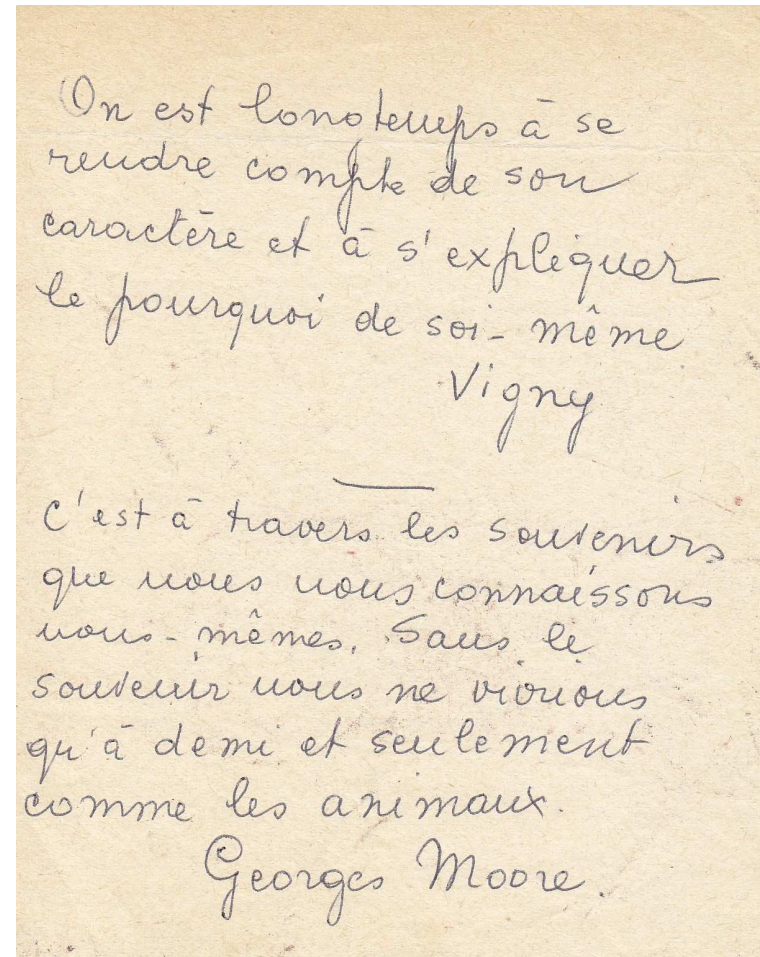 On est longtemps à se
rendre compte de son
caractère et à s'expliquer
le pourquoi de soi-même
Vigny
C'est à travers les souvenirs
que nous nous connaissons
nous-mêmes. Sans le
souvenir nous ne vivrions
qu'à demi et seulement
comme les animaux.
Georges Moore.